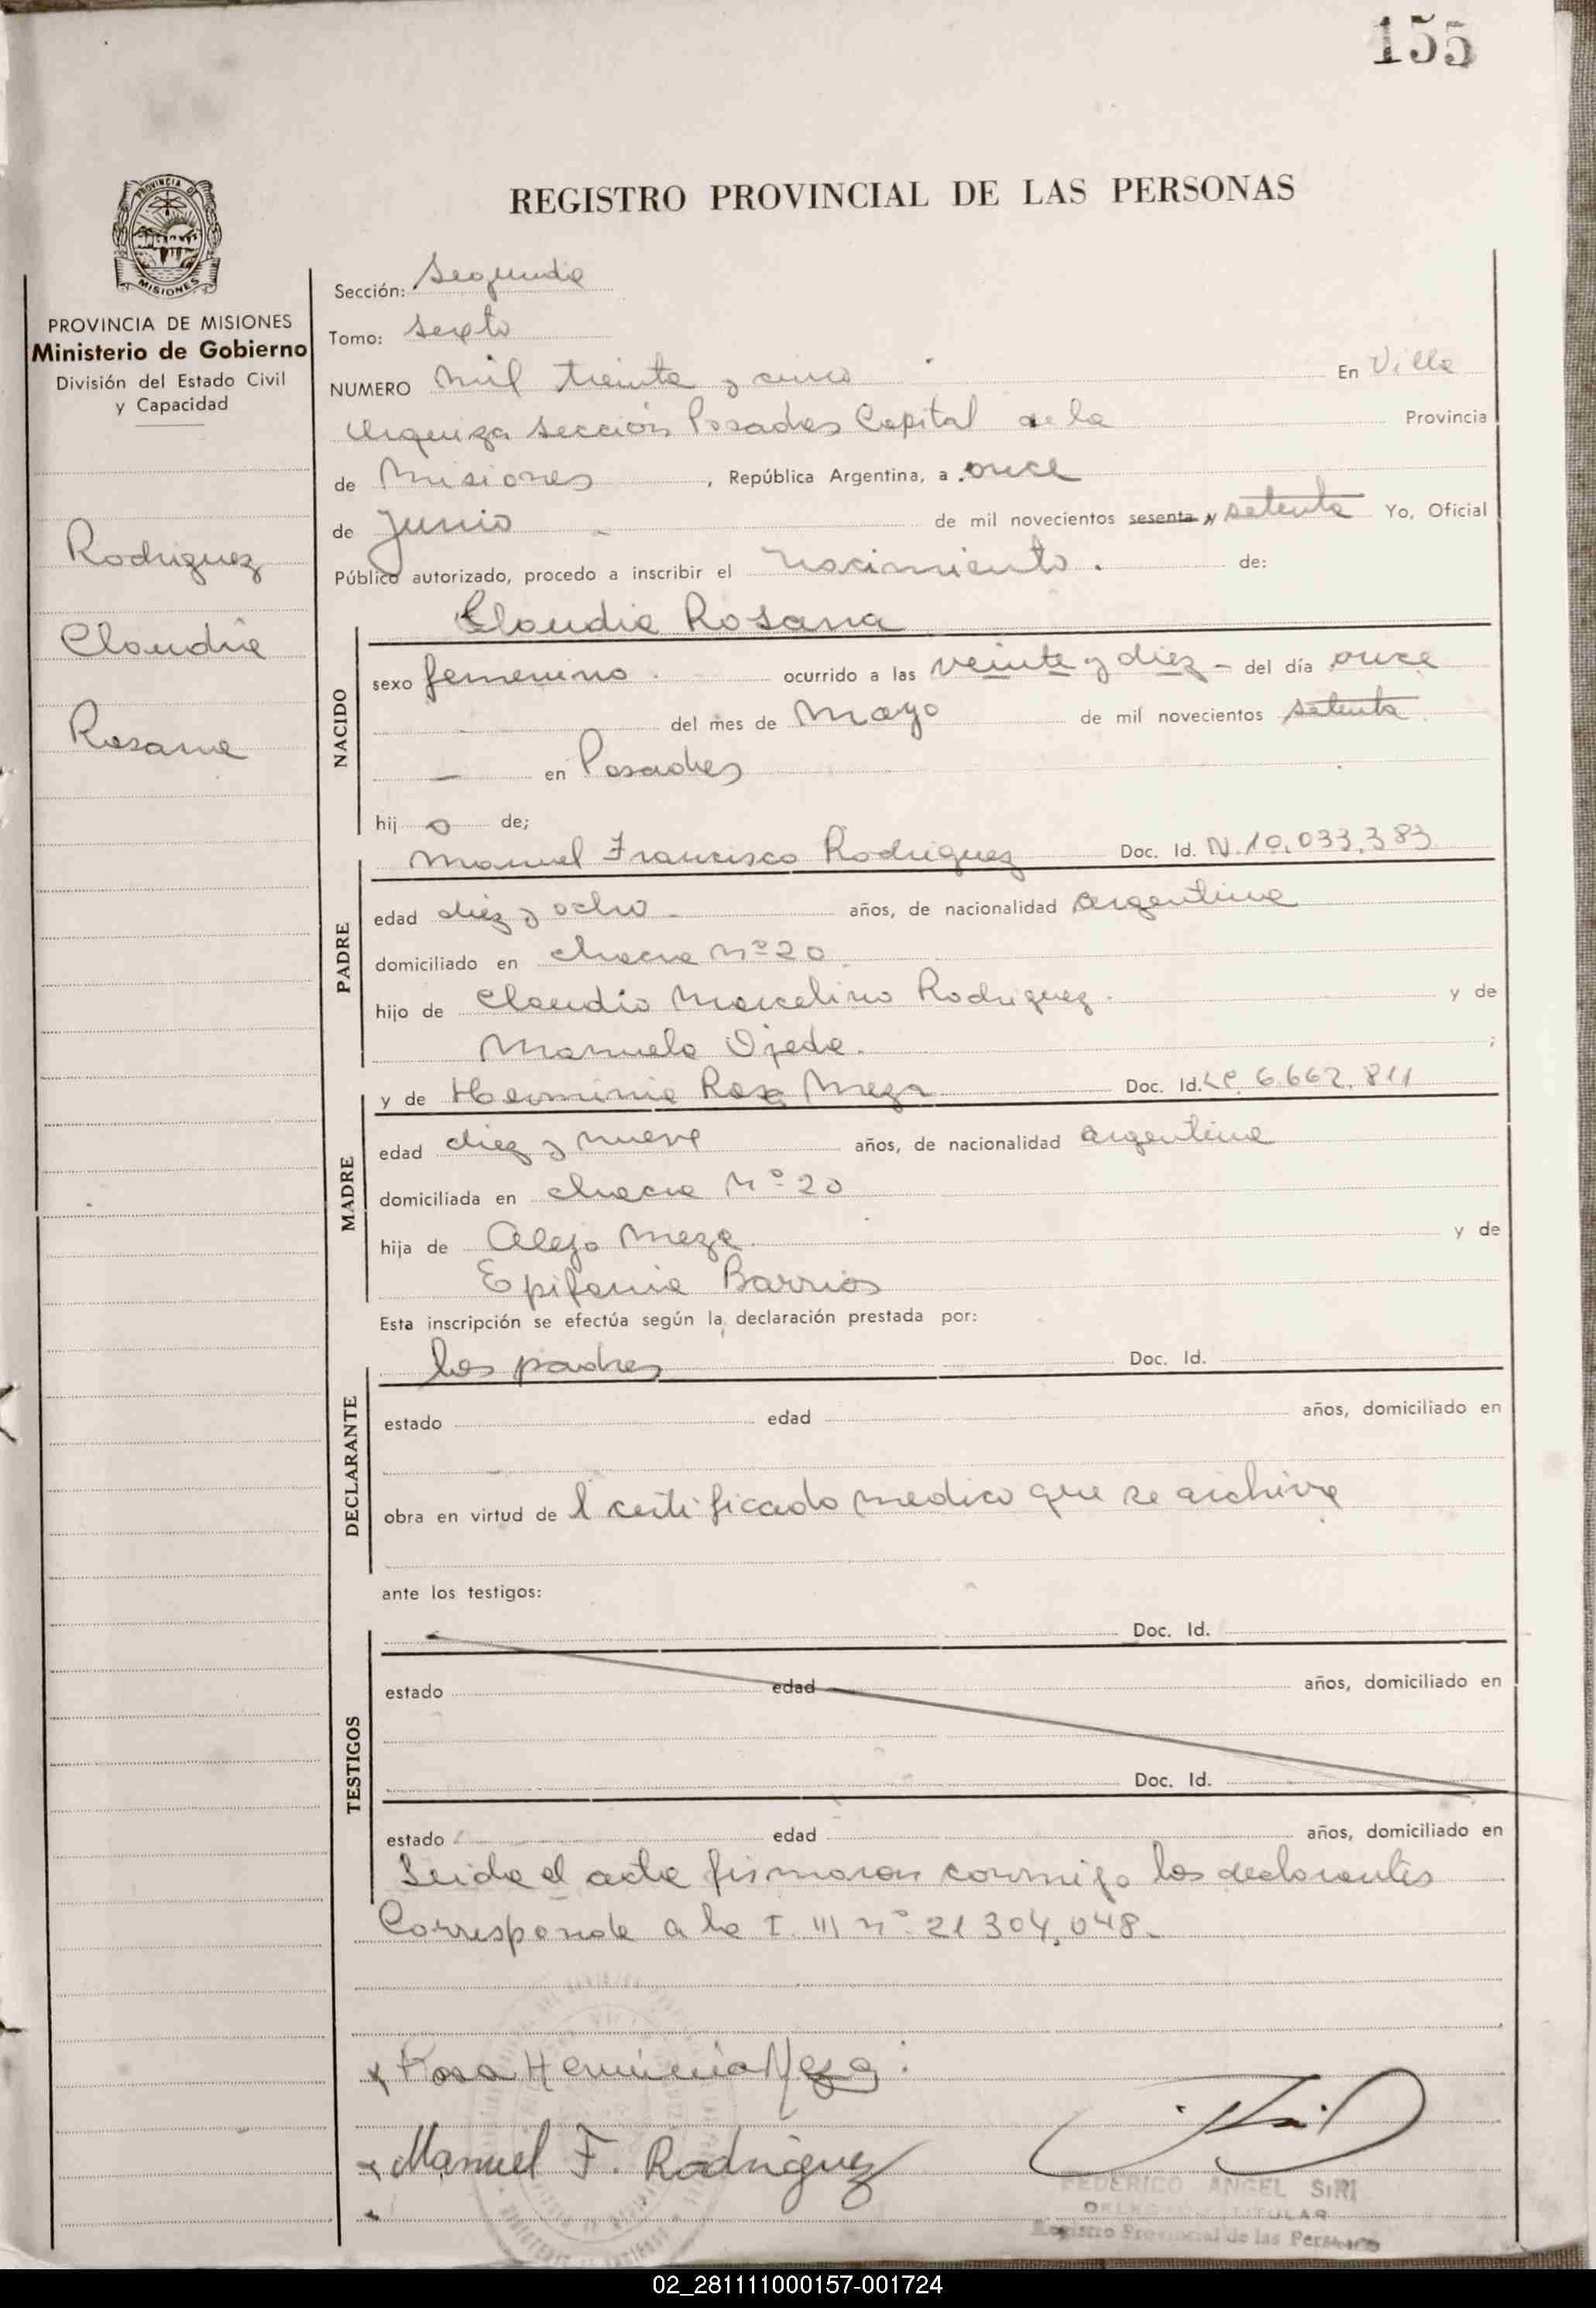 155
REGISTRO PROVINCIAL DE LAS PERSONAS
PROVINCIA DE MISIONES
PROVINCIA DE MISIONES
Ministerio de Gobierno
División del Estado Civil
y Capacidad
Rodriguez
Claudia
Rosana
Sección: Segunda
Tomo: sexto
NUMERO mil treinta y cinco En Villa
Urquiza sección Posadas Capital de la Provincia
de Misiones, República Argentina, a once
de Junio de mil novecientos sesenta y setenta Yo, Oficial
Público autorizado, procedo a inscribir el nacimiento. de:
Claudia Rosana
NACIDO
sexo femenino. ocurrido a las veinte y diez - del día once
del mes de Mayo de mil novecientos setenta
— en Posadas
hij o de;
Manuel Francisco Rodriguez Doc. Id. N. 10.033.383
PADRE
edad diez y ocho - años, de nacionalidad argentina
domiciliado en chacra Nº 20
hijo de Claudio Marcelino Rodriguez. y de
Manuela Ojeda. ;
y de Herminia Rosa Meza Doc. Id. LC 6.662.811
MADRE
edad diez y nueve años, de nacionalidad argentina
domiciliada en chacra Nº 20
hija de Alejo Meza. y de
Epifania Barrios
Esta inscripción se efectúa según la declaración prestada por:
los padres Doc. Id.
DECLARANTE
estado edad años, domiciliado en
obra en virtud de l certificado medico que se archiva
ante los testigos:
Doc. Id.
TESTIGOS
estado edad años, domiciliado en
Doc. Id.
estado edad años, domiciliado en
Leida el acta firmaron conmigo los declarantes
Corresponde a la I. III nº 21 304.048.-
x Rosa Herminia Meza
x Manuel F. Rodriguez
x
FEDERICO ANGEL SIRI
DELEGADO TITULAR
Registro Provincial de las Personas
02_281111000157-001724